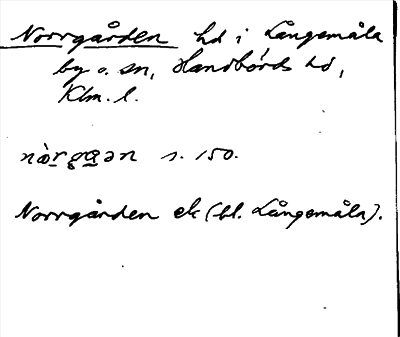 Norrgården hd i Långemåla
by o. sn, Handbörds hd,
Klm. l.
nàrgɑən s. 150.
Norrgården ek (bl. Långemåla).